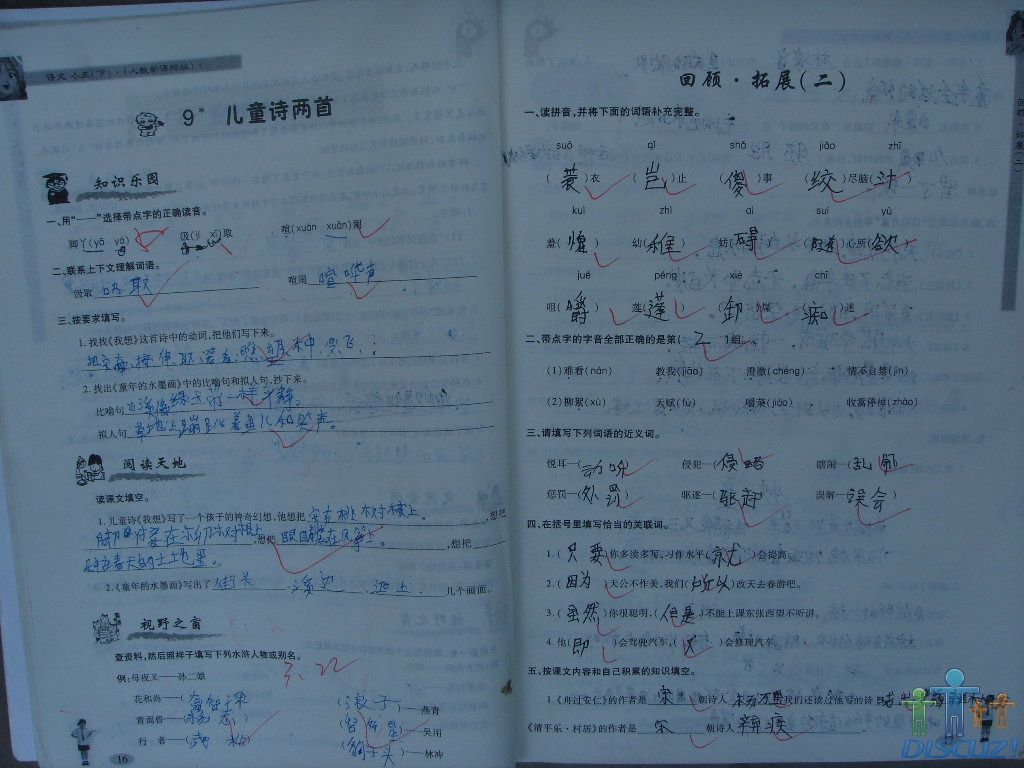 语文 小五(下)·(人教新课标版)
9* 儿童诗两首
知识乐园
一、用“——”选择带点字的正确读音。
脚丫(yā yá) 汲(jí xī)取 喧(xuán xuān)闹
二、联系上下文理解词语。
汲取 吸取 喧闹 喧哗声
三、按要求填写。
1. 找找《我想》这首诗中的动词,把他们写下来。
2. 找出《童年的水墨画》中的比喻句和拟人句,抄下来。
比喻句
拟人句 草地上蹦跶着鱼儿和笑声。
阅读天地
读课文填空。
1. 儿童诗《我想》写了一个孩子的神奇幻想,他想把 安在桃树枝上。 ,想把
脚丫 接在柳树根上 ,想把 眼睛装在风筝上。 ,想把
种在春天的土地里。
2.《童年的水墨画》写出了 街头 溪边 池上 几个画面。
视野之窗
查资料,然后照样子填写下列水浒人物或别名。
例:母夜叉——孙二娘
花和尚——( 鲁智深 (浪子)——燕青
青面兽——(杨志) (智多星)——吴用
行 者——(武松 (豹子头)——林冲
3、22
16
回顾·拓展(二)
一、读拼音,并将下面的词语补充完整。
suō qǐ shǎ jiǎo zhī
(蓑)衣 (岂)止 (傻)事 (绞)尽脑(汁)
kuì zhì ài suí yù
羞(愧) 幼(稚) 妨(碍) (随)心所(欲)
jué péng xiè chī
咀(嚼) 莲(蓬) (卸)煤 (痴)迷
二、带点字的字音全部正确的是第( 2 )组。
(1)难看(nán) 教我(jiāo) 澄澈(chéng) 情不自禁(jìn)
(2)柳絮(xù) 天赋(fù) 嚼菜(jiáo) 收篙停棹(zhào)
三、请填写下列词语的近义词。
悦耳—(动听) 侵犯—(侵略) 瞎闹—(乱闹)
惩罚—(处罚) 驱逐—(驱赶) 误解—(误会)
四、在括号里填写恰当的关联词。
1.(只要)你多读多写,习作水平(就)会提高。
2.(因为)天公不作美,我们(所以)改天去春游吧。
3.(虽然)你很聪明,(但是)不能上课东张西望不听讲。
4. 他(即)会驾驶汽车,(又)会修理汽车。
五、按课文内容和自己积累的知识填空。
1.《舟过安仁》的作者是 宋 朝诗人 杨万里 我们还读过他写的诗
《清平乐·村居》的作者是 宋 朝诗人 辛弃疾 。
回顾·拓展(二)
DISCUZ!